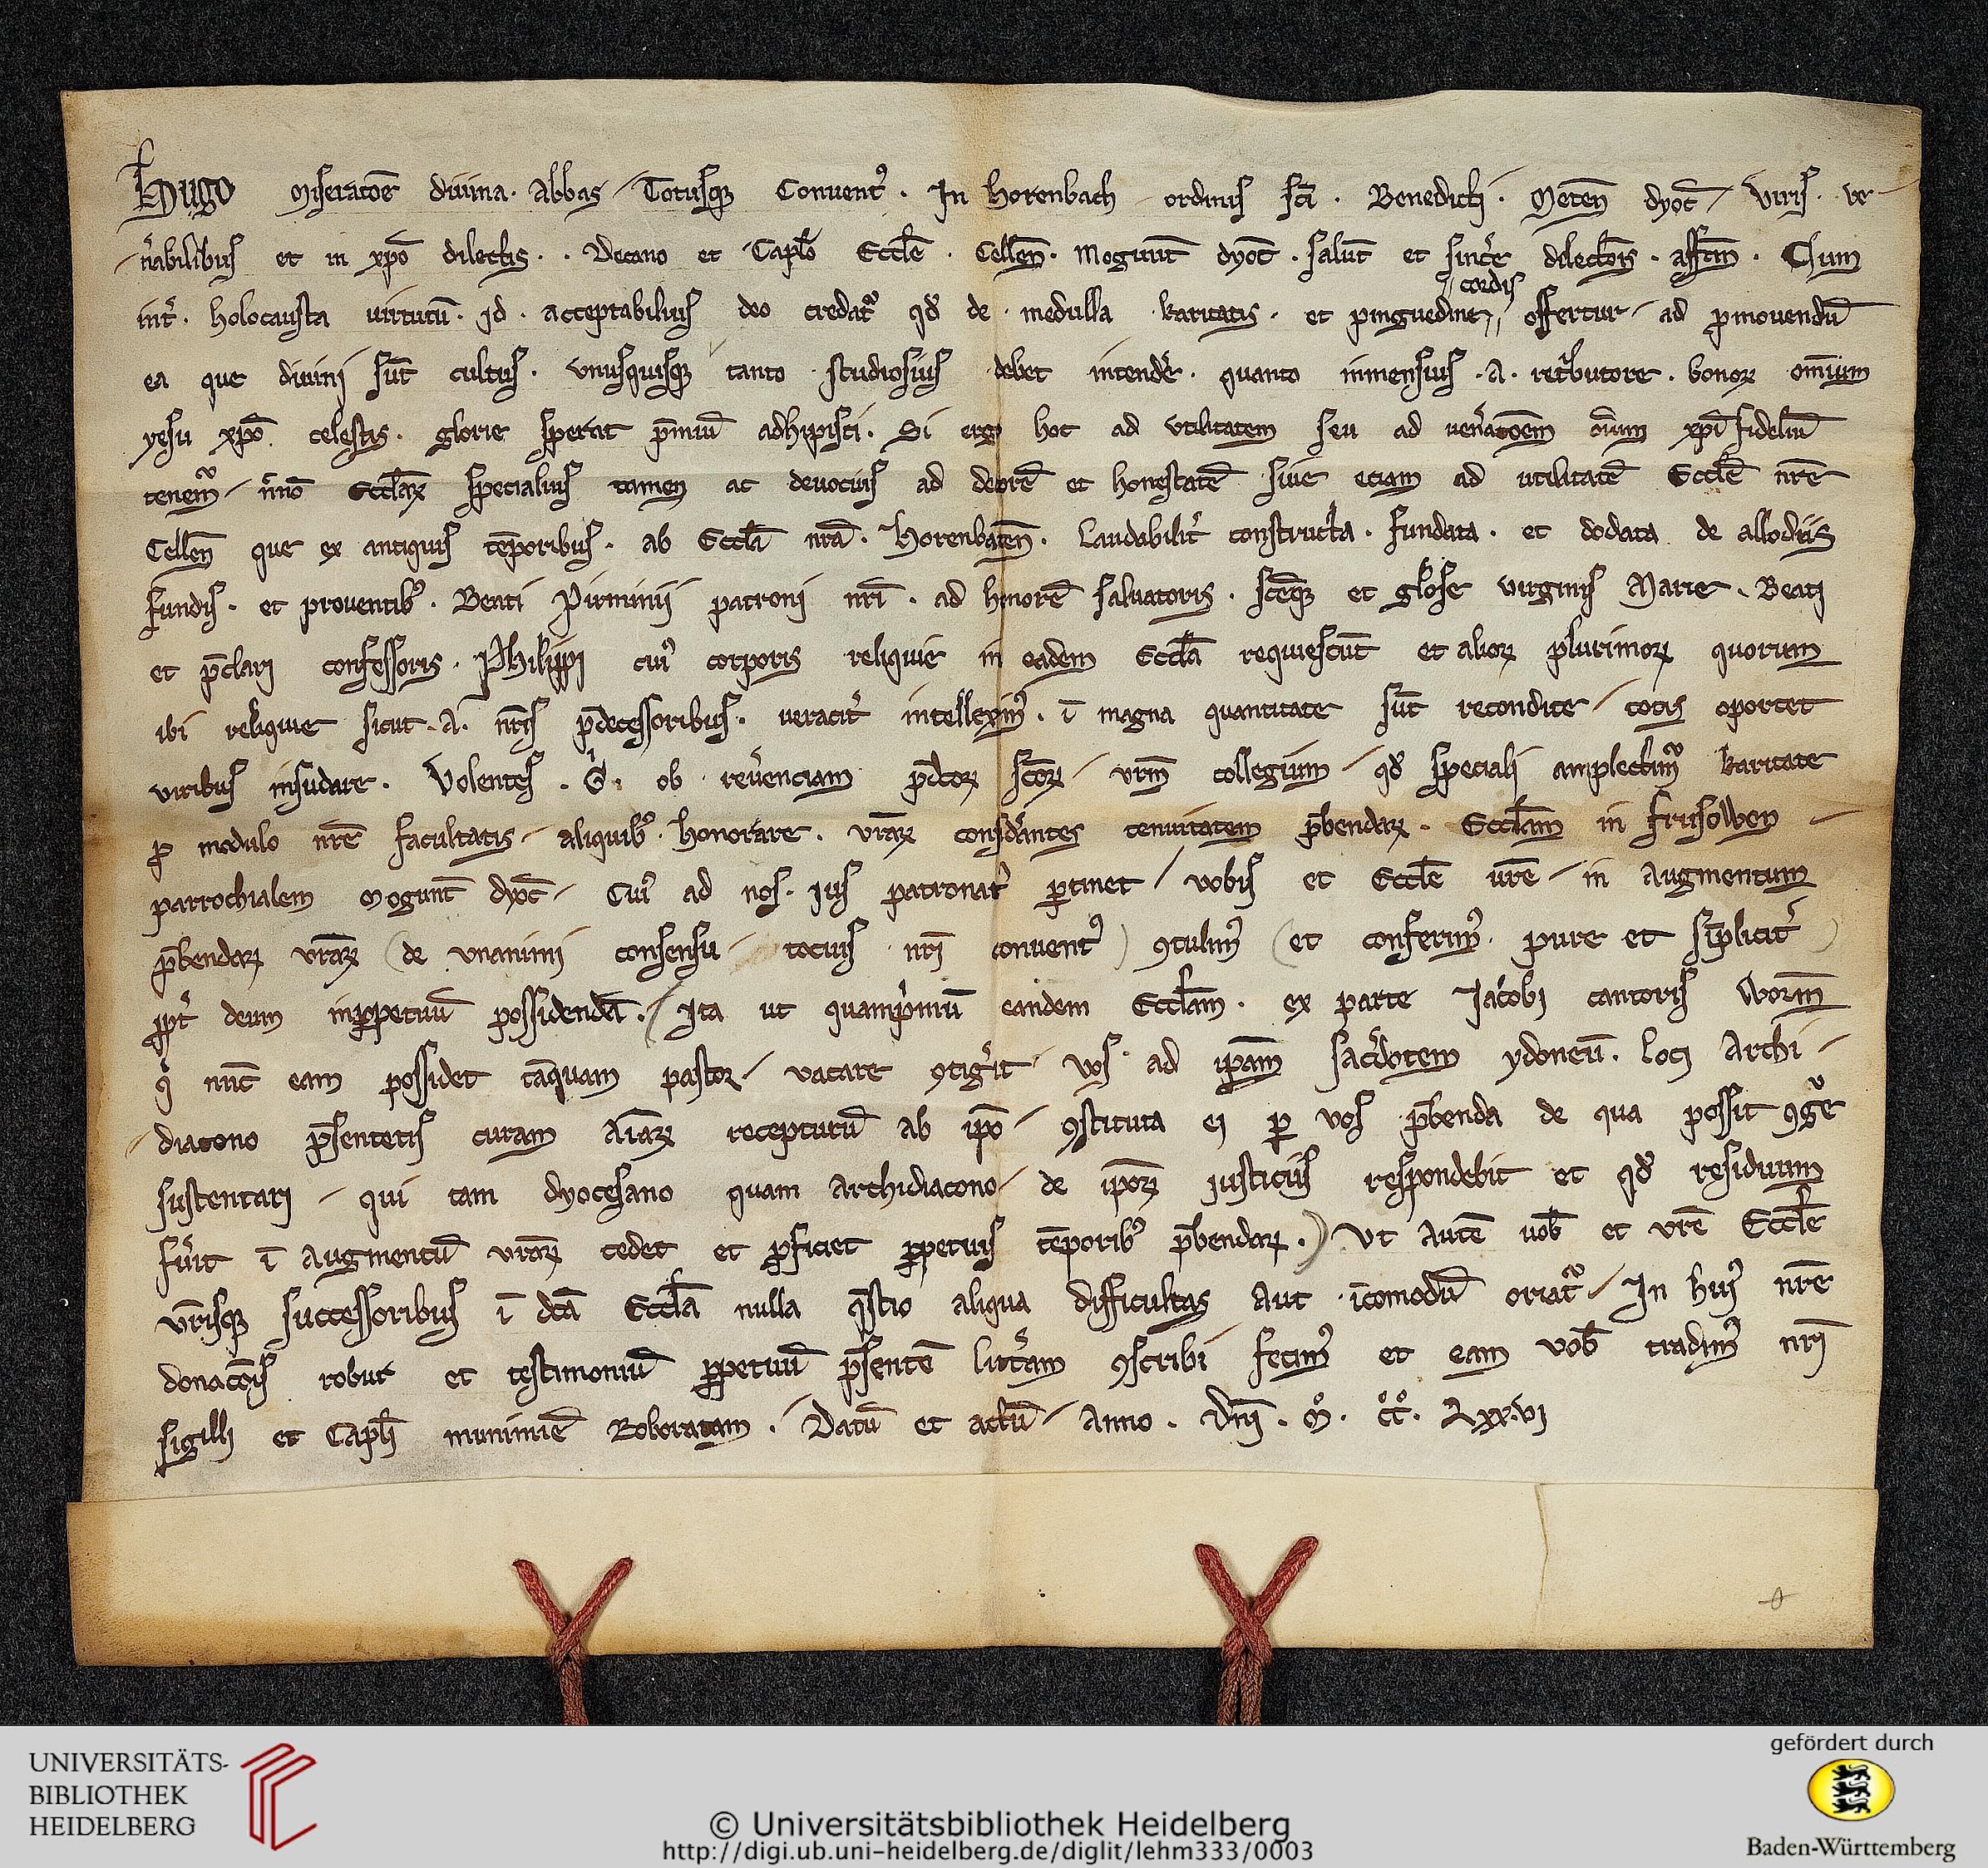 Hugo miserac̄oe diuina. Abbas / Totusqȝ Conuentꝰ. In Horenbach ordinis sc̄i. Benedicti. Meten̄ dyoc̄ / Viris. ve-
-n̄abilibus et in xp̄o dilectis.. Decano et Capl̄o Eccl̄e. Cellen̄. Mogunt̄ dyoc̄. salut̄ et sincˀe dilectōis. affc̄m. Cum
intˀ. holocausta uirtutū. id. acceptabilius deo credatᷣ qď de medulla karitatis. et pinguedine // cordis // offertur / ad ꝓmouendū
ea que diuini sūt cultus. vnusquisqȝ tanto studiosius debet intendˀe. quanto inmensius. a. ret̾butore. bonoꝝ om̄ium
yesu xp̄o celestis. glorie sperat p̄miū adhipisci. Si ergo hoc ad vtilitatem seu ad uen̾ac̄oem om̄ium xp̄i fideliū
tenemᷣ / n̄no Eccl̄aꝝ specialius tamen ac deuocius ad decorē et honestatē siue etiam ad utilitatē Eccl̄e nr̄e
Cellen̄ que ex antiquis tēporibus. ab Eccl̄a nr̄a. Horenbacen̄. Laudabilitˀ constructa. fundata. et dodata de allodiis
fundis. et prouentibꝰ. Beati Pirminii patroni nr̄i. ad honorē saluatoris. sc̄eqȝ et gl̄ose virginis Marie. Beati
et p̄clari confessoris. Philippi cuiꝰ corporis reliquie in eadem Eccl̄a requiescūt et alioꝝ plurimoꝝ quorum
ibi reliquie sicut. a. nr̄is p̄decessoribus. ueracitˀ intelleximꝰ. ī magna quantitate sūt recondite / totis oportet
viribus insudare. Volentes. gͦ. ob reuˀenciam p̄dc̄oꝝ sc̄oꝝ / vr̄m collegium / qď speciali amplectimᷣ karitate
ꝓ modulo nr̄e facultatis / aliquibꝰ. honorare. vr̄aꝝ consid̾antes tenuitatem p̄bendaꝝ. Eccl̄am in frisowen /
parrochialem Mogunt̄ dyoc̄ / Cuiꝰ ad nos. ius patronatꝰ ꝑtinet / uobis et Eccl̄e ur̄e / in augmentum
p̄bendaꝝ vr̄aꝝ (de vnanimi consensu / tocius nr̄i conuentꝰ) ꝯtulimꝰ (et conferimꝰ. pure et sīplicitˀ)
ꝓptˀ deum inꝑpetuū possidendā. / Ita ut quamp̾mū eandem Eccl̄am. ex parte Jacobi cantoris Worm̄
qͥ nūc eam possidet tāquam pastor / vacare ꝯtigˀit / vos ad ip̄am sac̾dotem ydoneū. loci Archi-
-diacono p̄sentetis curam aīaꝝ recepturū ab ip̄o / ꝯstituta ei ꝑ vos p̄benda de qua possit ꝯgˀe
sustentari / qui tam dyocesano quam archidiacono / de ip̄oꝝ iusticiis respondebit et qď residuum
fuˀit ī augmentū vr̄aꝝ cedet et ꝓficiet ꝑpetuis tēporibꝰ p̄bendaꝝ.) Vt autē uob̄ et vr̄e Eccl̄e
vr̄isqȝ successoribus ī dc̄a Eccl̄a nulla q̄stio aliqua difficultas aut īcomodū oriatᷣ / In huiꝰ nr̄e
donac̄ois robur et testimoniū ꝑpetuū p̄sentē litt̾am ꝯscribi fecimꝰ et eam vob̄ tradimꝰ nr̄i
sigilli et Capl̄i munimīe Roboratam. Datū et actū / Anno. Dn̄i. Mͦ. CͦCͦ. Lxx.vi
UNIVERSITÄTS-
BIBLIOTHEK
HEIDELBERG
© Universitätsbibliothek Heidelberg
http://digi.ub.uni-heidelberg.de/diglit/lehm333/0003
gefördert durch
Baden-Württemberg